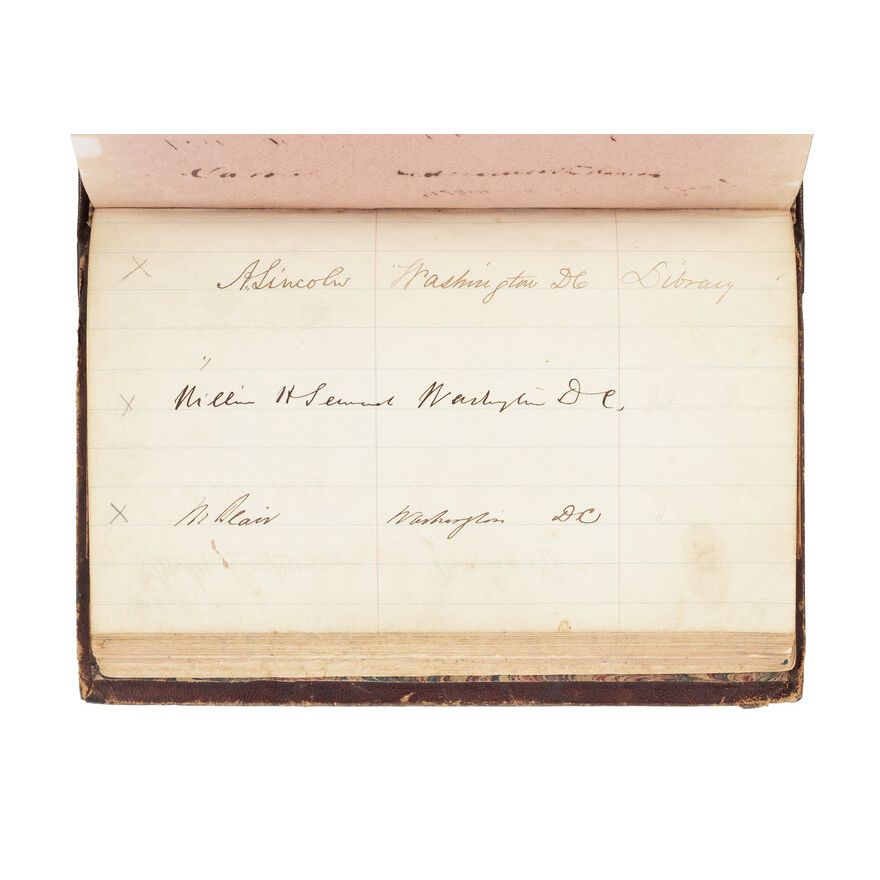 x A. Lincoln Washington DC Library
x William H Seward Washington D C.
x M Blair Washington DC